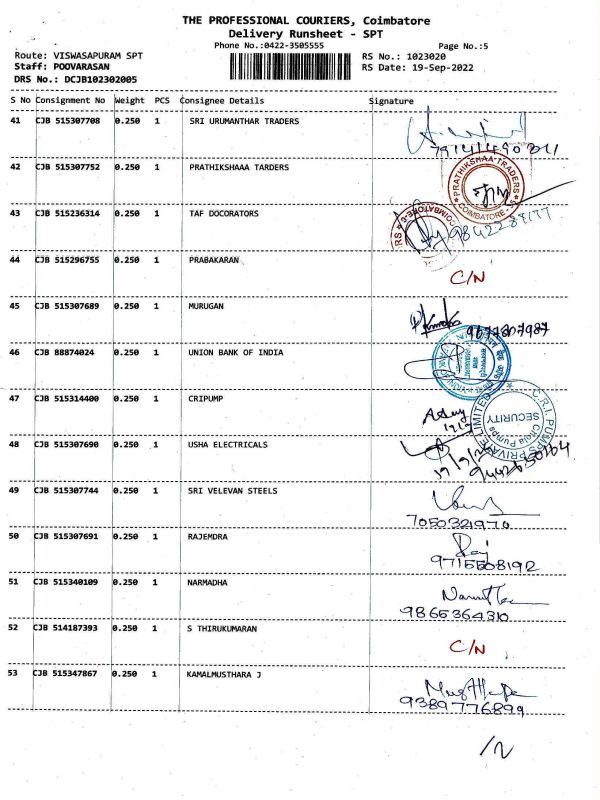 THE PROFESSIONAL COURIERS, Coimbatore
Delivery Runsheet - SPT
Phone No.:0422-3505555 Page No.:5
Route: VISWASAPURAM SPT RS No.: 1023020
Staff: POOVARASAN RS Date: 19-Sep-2022
DRS No.: DCJB102302005
S No Consignment No Weight PCS Consignee Details Signature
41 CJB 515307708 0.250 1 SRI URUMANTHAR TRADERS
42 CJB 515307752 0.250 1 PRATHIKSHAAA TARDERS
PRATHIKSHAA TRADERS
COIMBATORE
43 CJB 515236314 0.250 1 TAF DOCORATORS
COIMBATORE
44 CJB 515296755 0.250 1 PRABAKARAN
C/N
45 CJB 515307689 0.250 1 MURUGAN
9677807987
46 CJB 88874024 0.250 1 UNION BANK OF INDIA
47 CJB 515314400 0.250 1 CRIPUMP
C.R.I. PUMPS PRIVATE LIMITED
SECURITY
48 CJB 515307690 0.250 1 USHA ELECTRICALS
49 CJB 515307744 0.250 1 SRI VELEVAN STEELS
7050321970
50 CJB 515307691 0.250 1 RAJEMDRA
Raj
9715508192
51 CJB 515340109 0.250 1 NARMADHA
9865364310
52 CJB 514187393 0.250 1 S THIRUKUMARAN
C/N
53 CJB 515347867 0.250 1 KAMALMUSTHARA J
9389776899